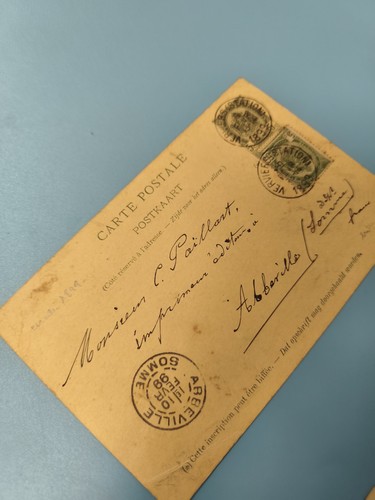 CARTE POSTALE
POSTKAART
(Côté réservé à l'adresse. — Zijde voor het adres alleen.)
Monsieur C. Paillart,
imprimeur éditeur à
Abbeville
(Somme)
france
ABBEVILLE
10
FEVR
99
SOMME
VERVIERS (STATION)
(STATION)
(a) Cette inscription peut être biffée. — Dit opschrift mag doorgehaald worden.